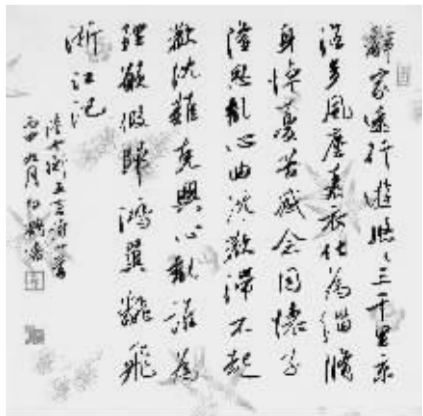 辭家遠行遊悠々三千里京
洛多風塵素衣化為緇脩
身悼憂苦感念同懷子
隆思亂心曲沈歡滯不起
歡沈難克興心亂誰為
理願假歸鴻翼翻飛
浙江汜
陸士衡五言詩一首
九月